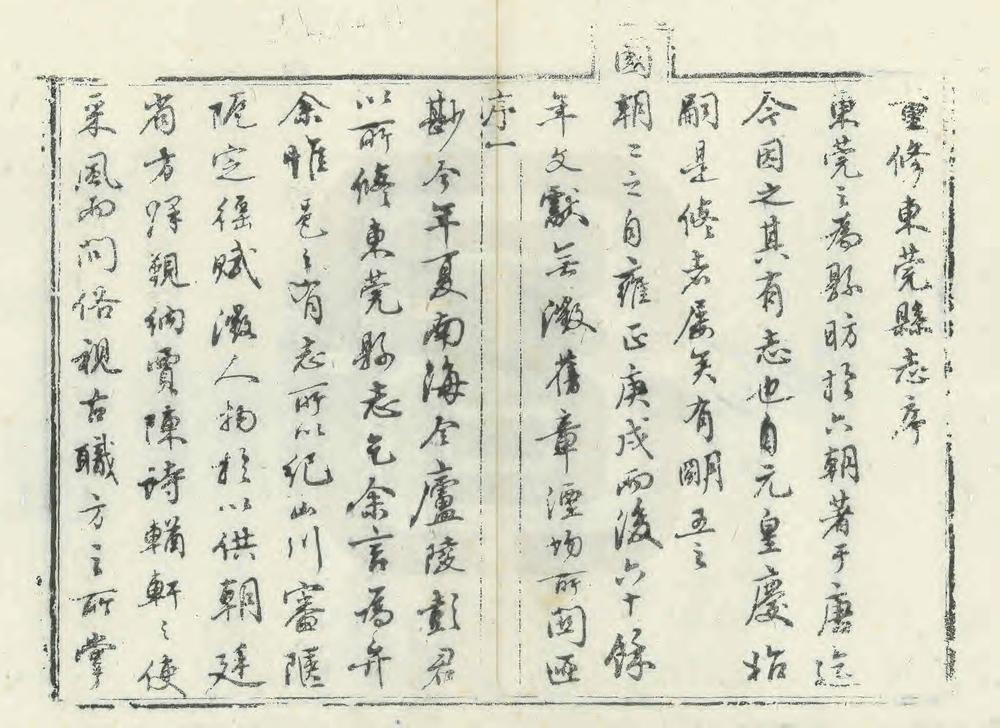 重修東莞縣志序
東莞之為縣昉於六朝著于唐迄
今因之其有志也自元皇慶始
嗣是修者屢矣有明五之
國
朝二之自雍正庚戌而後六十餘
年文獻無徵舊章湮沕所關匪
序一
尠今年夏南海令廬陵彭君
以所修東莞縣志乞余言爲弁
余惟邑之有志所以紀山川審阨
隘定徭賦徵人物於以供朝廷
省方肆覲納賈陳詩輶軒之使
采風而問俗視古職方之所掌